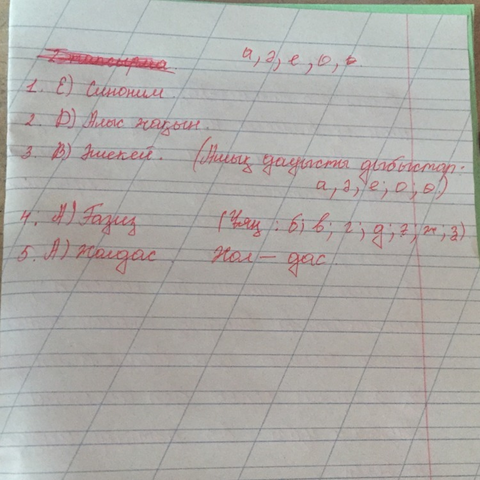 а, ә, е, о, ө
1. Е) Синоним.
2. D) Алыс жақын.
3. В) Әмекей. (Ашық дауысты дыбыстар:
а, ә, е, о, ө)
4. А) Ғазиз (Ұяң: б; в; г; ғ; д; ж; з)
5. А) Жолдас Жол – дас